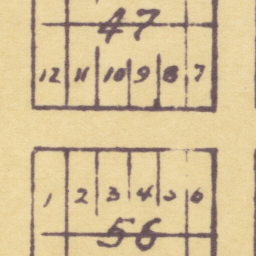 47
12 11 10 9 8 7
1 2 3 4 5 6
56